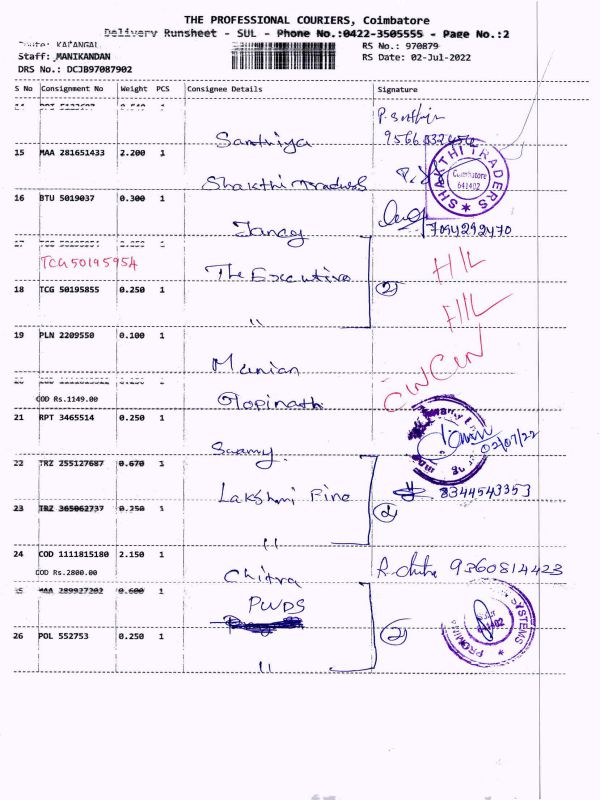 THE PROFESSIONAL COURIERS, Coimbatore
Delivery Runsheet - SUL - Phone No.:0422-3505555 - Page No.:2
Route: KALANGAL
RS No.: 970879
Staff: MANIKANDAN
RS Date: 02-Jul-2022
DRS No.: DCJB97087902
S No Consignment No Weight PCS Consignee Details Signature
Santhiya
15 MAA 281651433 2.200 1
Shakthi Traders
SHAKTHI TRADERS
Coimbatore
641402
16 BTU 5019037 0.300 1
7094292470
TCG 50195954
The Executive
H/L
18 TCG 50195855 0.250 1
2
"
H/L
19 PLN 2209550 0.100 1
Manian
COD Rs.1149.00
Gopinath
21 RPT 3465514 0.250 1
02/07/22
Swamy
22 TRZ 255127687 0.670 1
Lakshmi Fine
8344543353
23 TRZ 365062737 0.250 1
2
"
24 COD 1111815180 2.150 1
COD Rs.2800.00
Chitra
9360814423
MAA 289927202 0.600 1
PWDS
26 POL 552753 0.250 1
2
"
SYSTEMS
641402